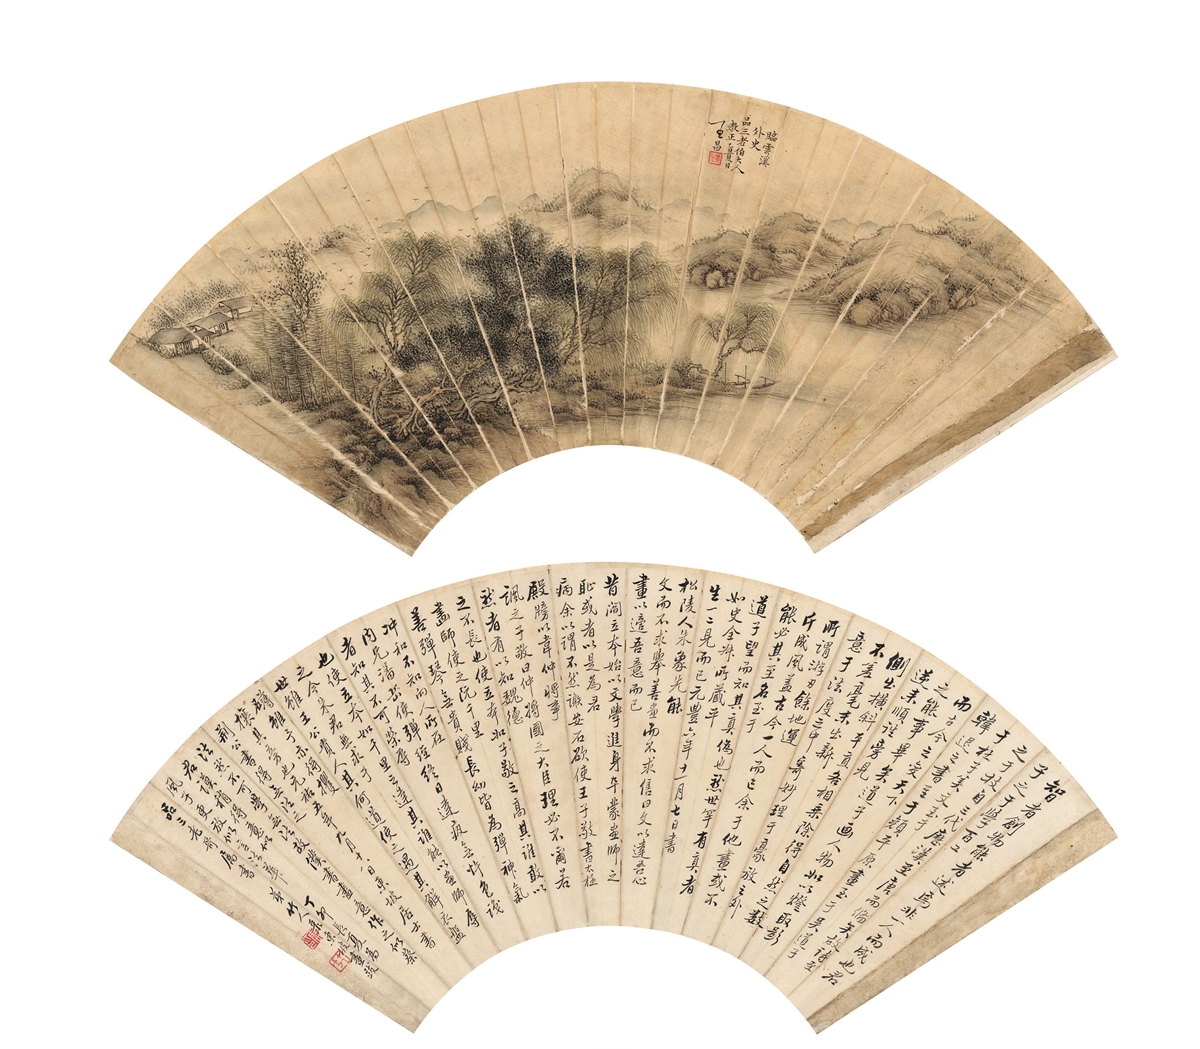 臨雲溪
外史
品三老伯大人
教正
王昌
智者創物能者述焉非一人而成也君
子之于學百工
之于技自三代歷漢至唐而備矣故詩至
于杜子美文至于
韓退之書至于顏平原畫至于吳道子
而古今之變天下
之能事畢矣道子畫人物如以燈取影
逆來順往旁見
側出橫斜平直各相乘除得自然之數
不差毫末出新
意于法度之中寄妙理于豪放之外
所謂游刃餘地運
斤成風蓋古今一人而已余于他畫或不
能必其主名至于
道子望而知其真偽也然世罕有真者
如史全叔所藏平
生一二見而已元豐六年十一月七日書
松陵人朱象先能
文而不求舉善畫而不求售曰文以達吾心
畫以適吾意而已
昔閻立本始以文學進身卒蒙畫師之
恥或者以是為君
病余以謂不然謝安石欲使王子敬書太極
殿牓以韋仲將事
諷之子敬曰仲將國之大臣理必不爾若
然者有以知魏德
之不長也使立本如子敬之高其誰敢以
畫師使之阮千里
善彈琴無貴賤長幼皆為彈神氣
沖和不知向人所在
內兄潘岳使彈終日達夜無忤色識
者知其不可榮辱
也使立本如千里之達其誰能以畫師辱
之今朱君無求于
世雖王公貴人其何道使之遇其解衣盤
礴雖余亦得攫
攘其旁也元祐五年九月十八日東坡居士書